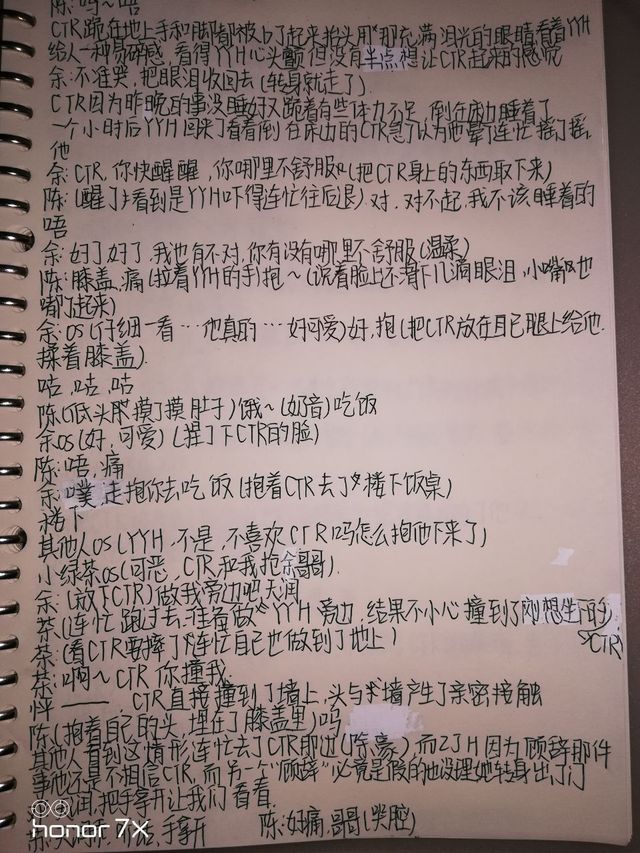 陈:呜~唔
CTR跪在地上手和脚都被 了起来抬头用 那充满泪光的眼睛看着YYH
给人一种易碎感,看得YYH心头颤但没有半点想让CTR起来的感觉
余:不准哭,把眼泪收回去(转身就走了)
CTR因为昨晚的事没睡好又跪着有些体力不足,倒在床边睡着了
一个小时后YYH回来了看着倒在床边的CTR急了以为他晕了连忙摇了摇
他
余:CTR,你快醒醒,你哪里不舒服(把CTR身上的东西取下来)
陈:(醒了)(看到是YYH吓得连忙往后退)对,对不起,我不该睡着的
唔
余:好了好了,我也有不对,你有没有哪里不舒服(温柔)
陈:膝盖,痛(拉着YYH的手)抱~(说着脸上还滑下几滴眼泪,小嘴也
嘟了起来)
余:OS(仔细一看…他真的…好可爱)好,抱(把CTR放在自己腿上给他
揉着膝盖)
咕,咕,咕
陈(低头 摸了摸肚子)饿~(奶音)吃饭
余OS(好,可爱)(捏了下CTR的脸)
陈:唔,痛
余:噗,走抱你去吃饭(抱着CTR去了 楼下饭桌)
楼下
其他人OS(YYH,不是,不喜欢CTR吗怎么抱他下来了)
小绿茶OS(可恶,CTR和我抢余哥哥)
余:(放下CTR)做我旁边吧天润
茶(连忙跑过去,准备做 YYH旁边,结果不小心撞到了刚想坐下的
CTR)
茶:(看CTR要摔了 连忙自己也做到了地上)
茶:啊~CTR你撞我
怦—— CTR直接撞到了墙上,头与 墙产生了亲密接触
陈(抱着自己的头,埋在了膝盖里)呜
其他人看到这情形连忙去了CTR那边(除豪)而ZJH因为顾辞那件
事他还是不相信CTR,而另一个“顾辞”必竟是假的也没理她转身出了门
润,把手拿开让我们看看
手拿开 陈:好痛,哥哥(哭腔)
honor 7X